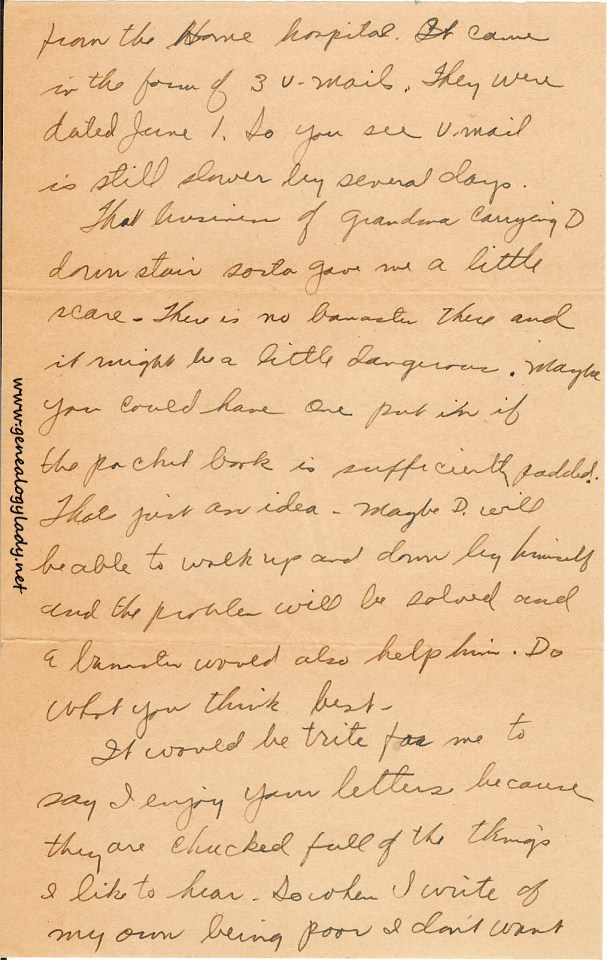 from the Home hospital. It came
in the form of 3 V-mails. They were
dated June 1. So you see V-mail
is still slower by several days.
That business of grandma carrying D
down stair sorta gave me a little
scare - There is no banaster there and
it might be a little dangerous. Maybe
you could have one put in if
the pocket book is sufficiently padded.
Thats just an idea - Maybe D. will
be able to walk up and down by himself
and the problem will be solved and
a banaster would also help him. Do
what you think best -
It would be trite for me to
say I enjoy your letters because
they are chucked full of the things
I like to hear - So when I write of
my own being poor I don't want
www.genealogylady.net